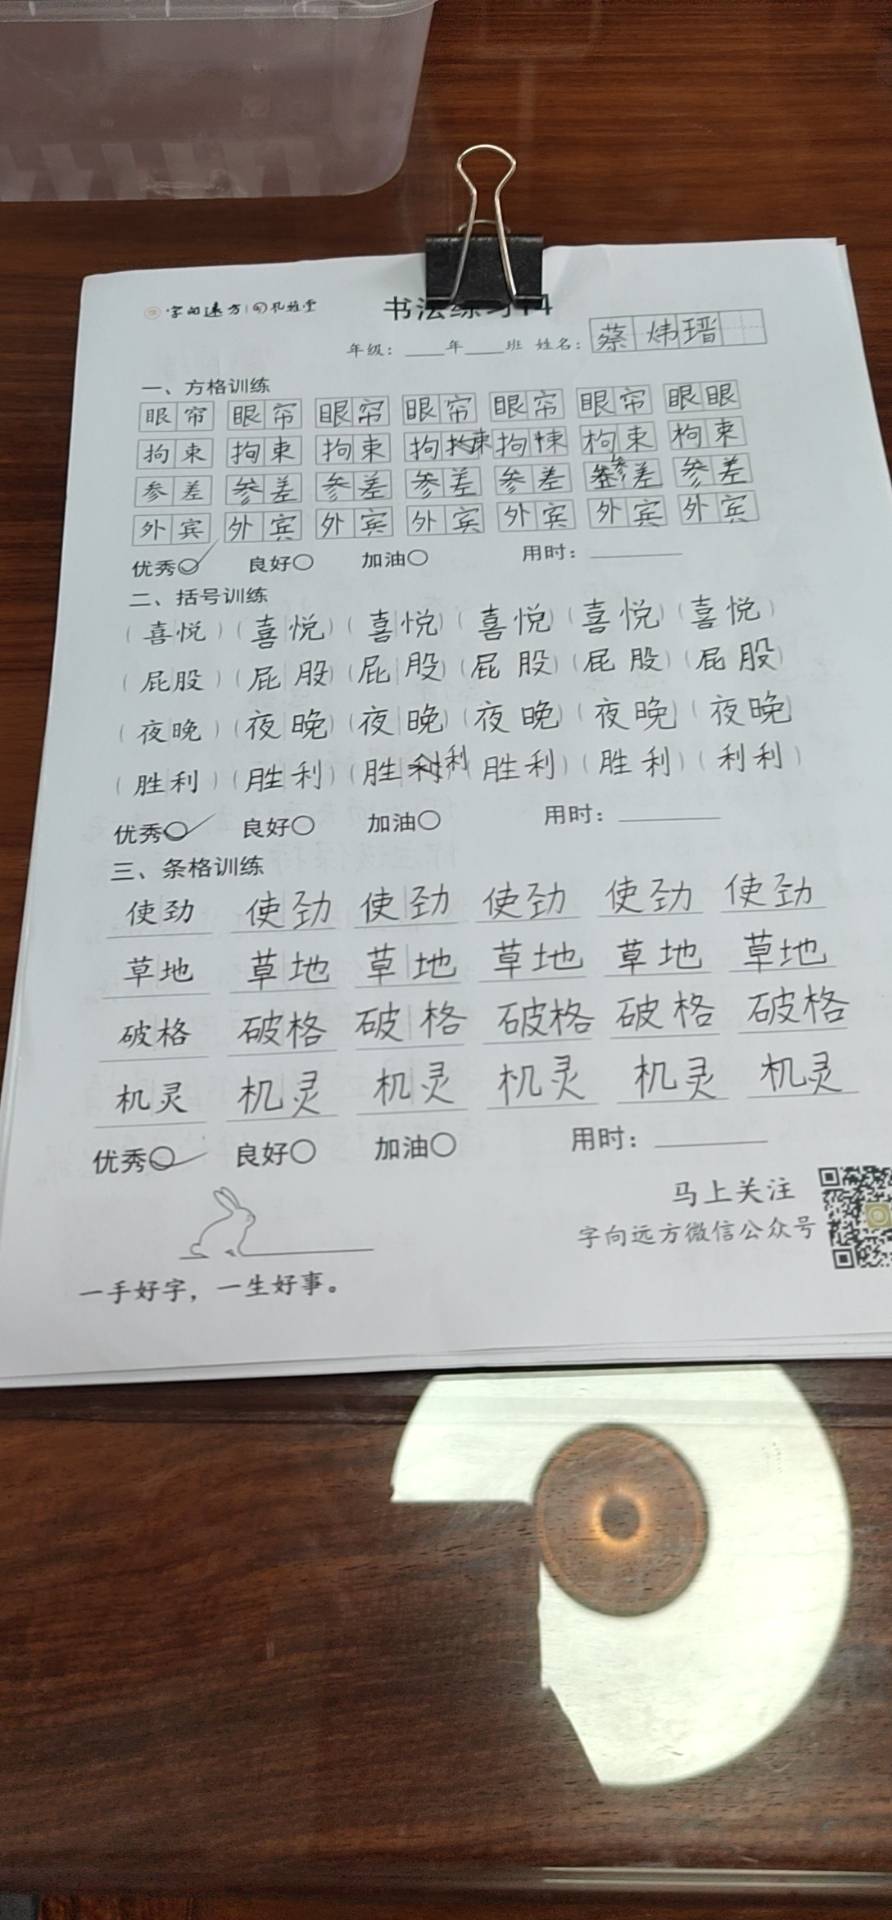 字向远方
书法练习14
年级：____年____班 姓名：蔡炜瑨
一、方格训练
眼帘 眼帘 眼帘 眼帘 眼帘 眼帘 眼眼
拘束 拘束 拘束 拘束 拘束 拘束 拘束
参差 参差 参差 参差 参差 参差 参差
外宾 外宾 外宾 外宾 外宾 外宾 外宾
优秀○ 良好○ 加油○ 用时：______
二、括号训练
（喜悦）（喜悦）（喜悦）（喜悦）（喜悦）（喜悦）
（屁股）（屁股）（屁股）（屁股）（屁股）（屁股）
（夜晚）（夜晚）（夜晚）（夜晚）（夜晚）（夜晚）
（胜利）（胜利）（胜利）（胜利）（胜利）（利利）
优秀○ 良好○ 加油○ 用时：______
三、条格训练
使劲 使劲 使劲 使劲 使劲 使劲
草地 草地 草地 草地 草地 草地
破格 破格 破格 破格 破格 破格
机灵 机灵 机灵 机灵 机灵 机灵
优秀○ 良好○ 加油○ 用时：______
马上关注
字向远方微信公众号
一手好字，一生好事。